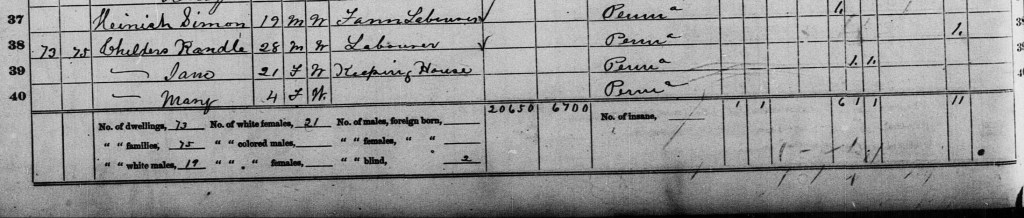 37 Heinish Simon 19 M W Farm Labourer ✓ Penna 1.
38 73 75 Childers Randle 28 M W Labourer ✓ Penna 1. 38
39 — Jane 21 F W Keeping House Penna 1. 1. 39
40 — Mary 4 F W. Penna 40
20650 6700 1 1 6 1 1 11
No. of dwellings, 73 No. of white females, 21 No. of males, foreign born, — No. of insane, —
" " families, 75 " " colored males, — " " females, " " —
" " white males, 19 " " " females, — " " blind, 2